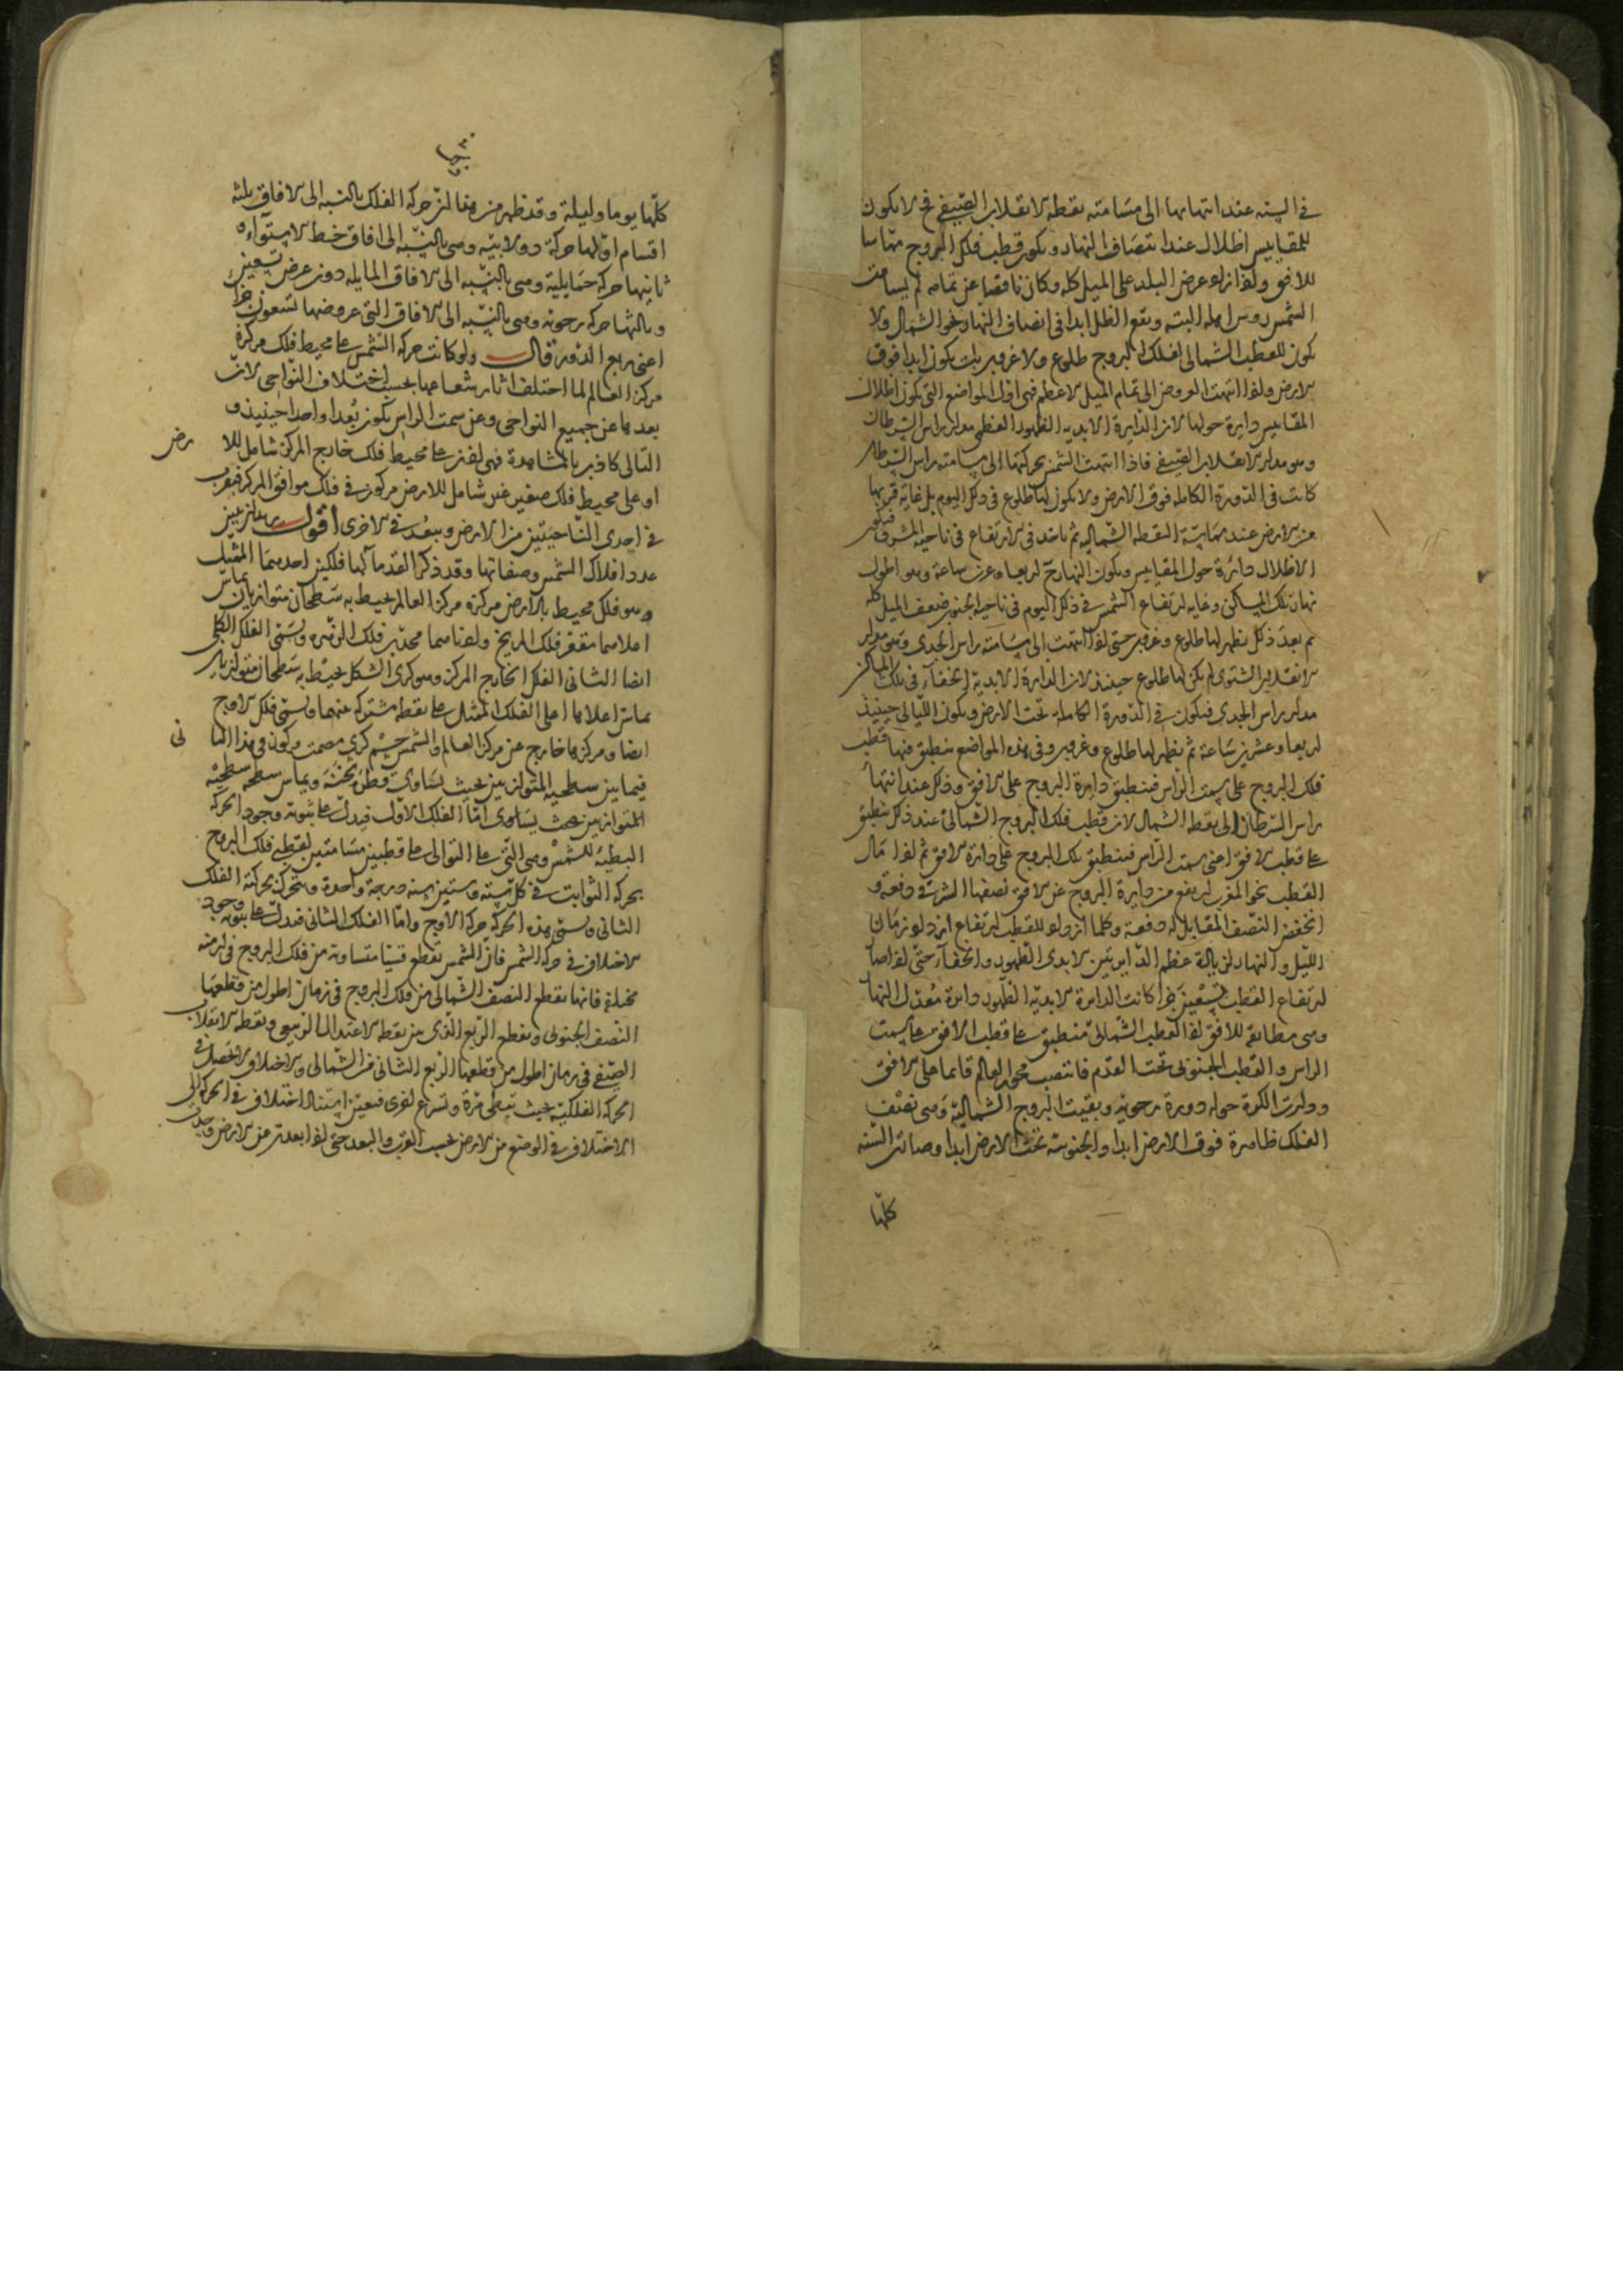 في السنه عند انتهائها الى مسامته نقطه الانقلاب الصيفي فح لا يكون
للمقاييس اظلال عند انتصاف النهار ويكون قطب فلك البروج مماسا
للافق واذا زاد عرض البلد على الميل كله وكان ناقصا عن تمامه لم يسامت
الشمس روس اهله البته ويقع الظل ابدا في انصاف النهار نحو الشمال ولا
يكون للقطب الشمالي لفلك البروج طلوع ولا غروب بل يكون ابدا فوق
الارض واذا انتهت العروض الى تمام الميل الاعظم فهي اول المواضع التي يكون اظلال
المقاييس دايرة حولها لان الدايرة الابديه الظهور العظمى مدار راس السرطان
وهو مدار الانقلاب الصيفي فاذا انتهت الشمس بحركتها الى مسامته راس السرطان
كانت في الدورة الكامله فوق الارض ولا يكون لها طلوع في ذلك اليوم بل غاية قربها
من الارض عند مماسة النقطه الشماليه ثم تاخذ في الارتفاع في ناحيه المشرق فيكون
الاظلال دائرة حول المقاييس ويكون النهار ح اربعا وعشرين ساعة وهو اطول
نهار تلك المساكن وغايه ارتفاع الشمس في ذلك اليوم في ناحيه الجنوب ضعف الميل كله
ثم بعد ذلك يظهر لها طلوع وغروب حتى اذا انتهت الى مسامته راس الجدي وهو مدار
الانقلاب الشتوى لم يكن لها طلوع حينئذ لان الدايرة الابدية الخفاء في تلك المساكن
مدار راس الجدي فيكون في الدورة الكاملة تحت الارض ويكون الليالي حينئذ
اربعا وعشرين ساعة ثم يظهر لها طلوع وغروب وفي هذه المواضع ينطبق فيها قطب
فلك البروج على سمت الراس فينطبق دايرة البروج على الافق وذلك عند انتهاء
راس السرطان الى نقطه الشمال لان قطب فلك البروج الشمالي عند ذلك ينطبق
على قطب الافق اعني سمت الراس فينطبق فلك البروج على دائرة الافق ثم اذا مال
القطب نحو المغرب ارتفع من دايرة البروج عن الافق نصفها الشرقي دفعة و
انخفض النصف المقابل له دفعة وكلما ازداد القطب ارتفاعا ازداد زمان
الليل والنهار لزيادة عظم الدايرتين الابدى الظهور والخفاء حتى اذا صار
ارتفاع القطب تسعين جزا كانت الدايرة الابدية الظهور دايرة معدل النهار
وهي مطابقه للافق اذا القطب الشمالي منطبق على قطب الافق على سمت
الراس والقطب الجنوبي تحت القدم فانتصب محور العالم قايما على الافق
ودارت الكرة حوله دورة رحوية وبقيت البروج الشمالية وهي نصف
الفلك ظاهرة فوق الارض ابدا والجنوبية تحت الارض ابدا وصارت السنه
كلها
كلها يوما وليلة وقد ظهر من هذا ان حركه الفلك بالنسبه الى الافاق ثلثه
اقسام اولها حركة دولابيه وهي بالنسبه الى افاق خط الاستواء
ثانيها حركه حمايلية وهي بالنسبه الى الافاق المايله دون عرض تسعين
وثالثها حركه رحويه وهي بالنسبه الى الافاق التي عروضها تسعون جزا
اعني ربع الدور قال ولو كانت حركه الشمس على محيط فلك مركزة
مركز العالم لما اختلف اثار شعاعها بحسب اختلاف النواحي لان
بعدها عن جميع النواحي وعن سمت الراس يكون بعدا واحدا حينئذ و
التالي كاذب بالمشاهدة فهي اذن على محيط فلك خارج المركز شامل للا رض
او على محيط فلك صغير غير شامل للارض مركوز في فلك موافق المركز فيقرب
في احدى الناحيتين من الارض ويبعد في الاخرى اقول يريد ان يبين
عدد افلاك الشمس وصفاتها وقد ذكر القدماء لها فلكين احدهما الممثل
وهو فلك محيط بالارض مركزه مركز العالم يحيط به سطحان متوازيان يماس
اعلاهما مقعر فلك المريخ وادناهما محدب فلك الزهره ويسمى الفلك الكلي
ايضا الثاني الفلك الخارج المركز وهو كري الشكل يحيط به سطحان متوازيان
يماس اعلاهما اعلى الفلك الممثل على نقطه مشتركه بينهما ويسمى فلك الاوج
ايضا ومركزها خارج عن مركز العالم والشمس جسم كري مصمت مركوز في هذا الثا نى
فيما بين سطحيه المتوازيين بحيث يساوى قطره ثخنه ويماس سطحه سطحيه
المتوازيين بحيث يساوى اما الفلك الاول فيدل على ثبوته وجود الحركه
البطيئة للشمس وهي التي على التوالي على قطبين مسامتين لقطبي فلك البروج
بحركه الثوابت في كل ستة وستين سنه درجة واحدة ويتحرك بحركته الفلك
الثاني ويسمى هذه الحركه حركه الاوج واما الفلك الثاني فيدل على ثبوته وجود
الاختلاف في حركه الشمس فان الشمس تقطع قسيا متساويه من فلك البروج في ازمنه
مختلفة فانها تقطع النصف الشمالي من فلك البروج في زمان اطول من قطعها
النصف الجنوبي وتقطع الربع الذى بين نقطه الاعتدال الربيعي ونقطه الانقلاب
الصيفي في زمان اطول من قطعها الربع الثاني من الشمالي والاختلاف لا يحصل في
الحركه الفلكية بحيث تبطى مرة وتسرع اخرى فتعين استناد اختلاف في الحركه الى
الاختلاف في الوضع من الارض بحسب القرب والبعد حتى اذا بعدت من الارض